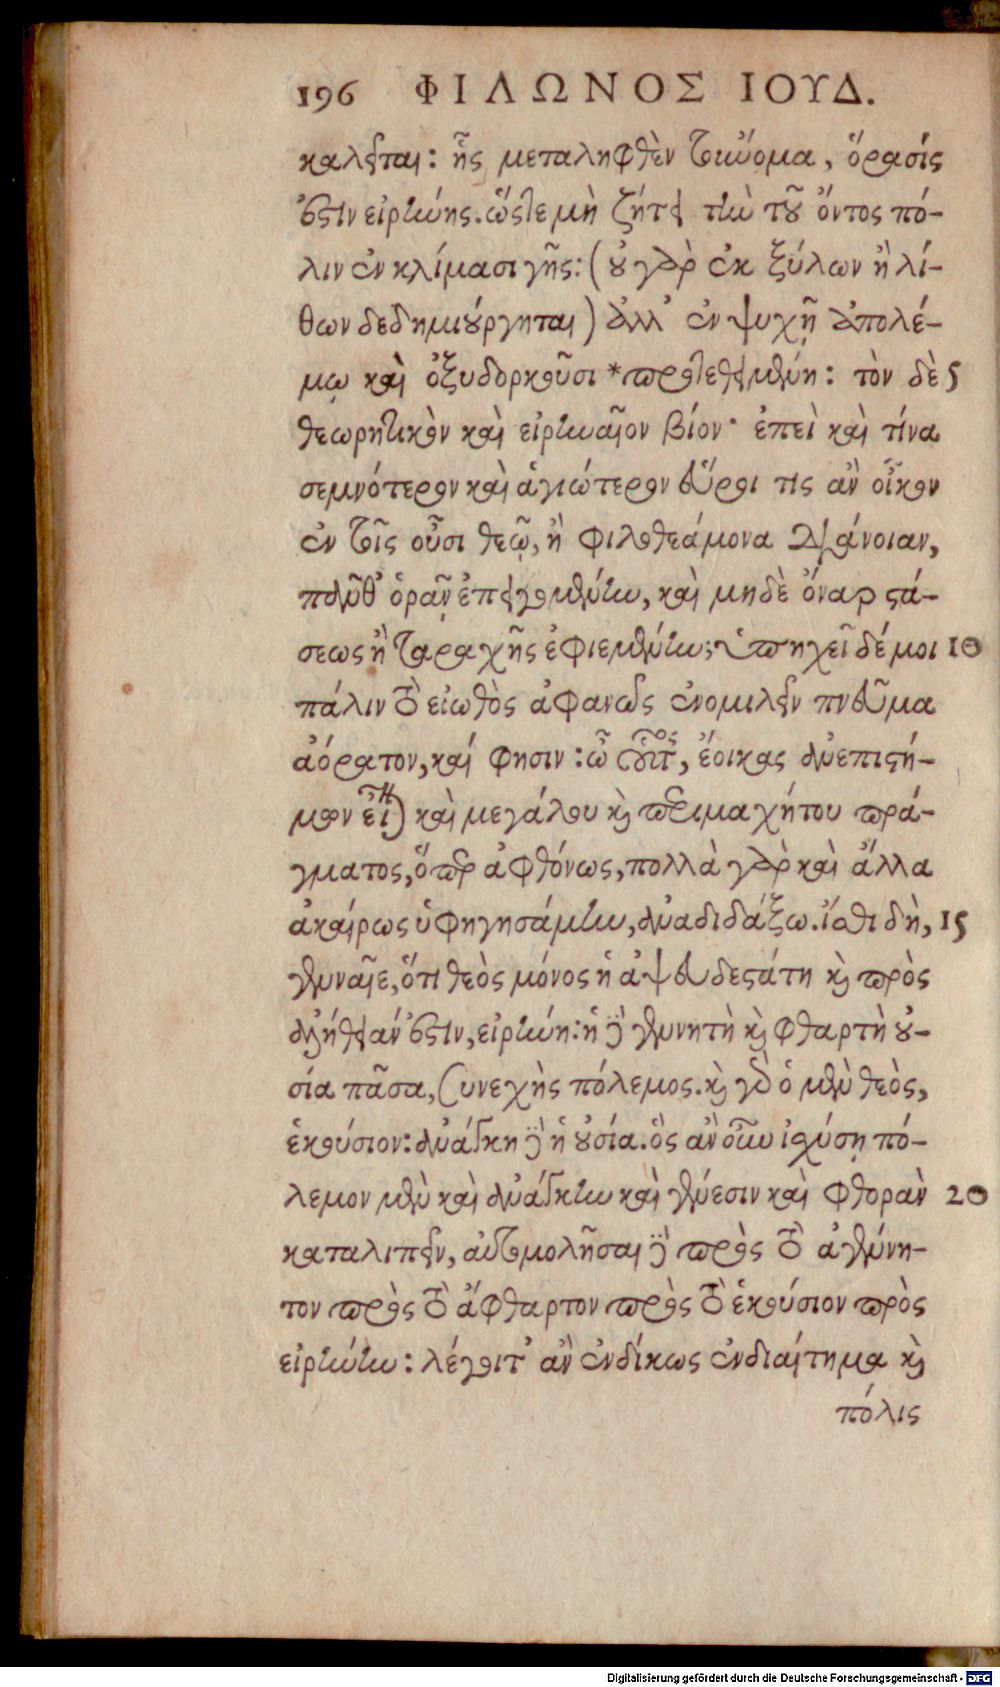 196 ΦΙΛΩΝΟΣ ΙΟΥΔ.
καλεῖται: ἧς μεταληφθὲν τοὔνομα, ὅρασίς
ἐστιν εἰρήνης. ὥστε μὴ ζήτει τὴν τοῦ ὄντος πό-
λιν ἐν κλίμασι γῆς: (οὐ γὰρ ἐκ ξύλων ἢ λί-
θων δεδημιούργηται) ἀλλ' ἐν ψυχῇ ἀπολέ-
μῳ καὶ ὀξυδορκοῦσι *προτεθειμένη: τὸν δὲ 5
θεωρητικὸν καὶ εἰρηναῖον βίον· ἐπεὶ καὶ τίνα
σεμνότερον καὶ ἁγιώτερον εὕροι τις ἂν οἶκον
ἐν τοῖς οὖσι θεῷ, ἢ φιλοθεάμονα διάνοιαν,
πάνθ' ὁρᾶν ἐπειγομένην, καὶ μηδὲ ὄναρ στά-
σεως ἢ ταραχῆς ἐφιεμένην; ὑπηχεῖ δέ μοι 10
πάλιν τὸ εἰωθὸς ἀφανῶς ἐνομιλεῖν πνεῦμα
ἀόρατον, καί φησιν: ὦ οὗτος, ἔοικας ἀνεπιστή-
μων εἶναι καὶ μεγάλου καὶ περιμαχήτου πρά-
γματος, ὅπερ ἀφθόνως, πολλὰ γὰρ καὶ ἄλλα
ἀκαίρως ὑφηγησάμην, ἀναδιδάξω. ἴσθι δὴ, 15
γενναῖε, ὅτι θεὸς μόνος ἡ ἀψευδεστάτη καὶ πρὸς
ἀλήθειάν ἐστιν, εἰρήνη: ἡ δὲ γεννητὴ καὶ φθαρτὴ οὐ-
σία πᾶσα, συνεχὴς πόλεμος. καὶ γὰρ ὁ μὲν θεὸς,
ἑκούσιον: ἀνάγκη δὲ ἡ οὐσία. ὃς ἂν οὖν ἰσχύσῃ πό-
λεμον μὲν καὶ ἀνάγκην καὶ γένεσιν καὶ φθορὰν 20
καταλιπεῖν, αὐτομολῆσαι δὲ πρὸς τὸ ἀγένη-
τον πρὸς τὸ ἄφθαρτον πρὸς τὸ ἑκούσιον πρὸς
εἰρήνην: λέγοιτ' ἂν ἐνδίκως ἐνδιαίτημα καὶ
πόλις
Digitalisierung gefördert durch die Deutsche Forschungsgemeinschaft - DFG